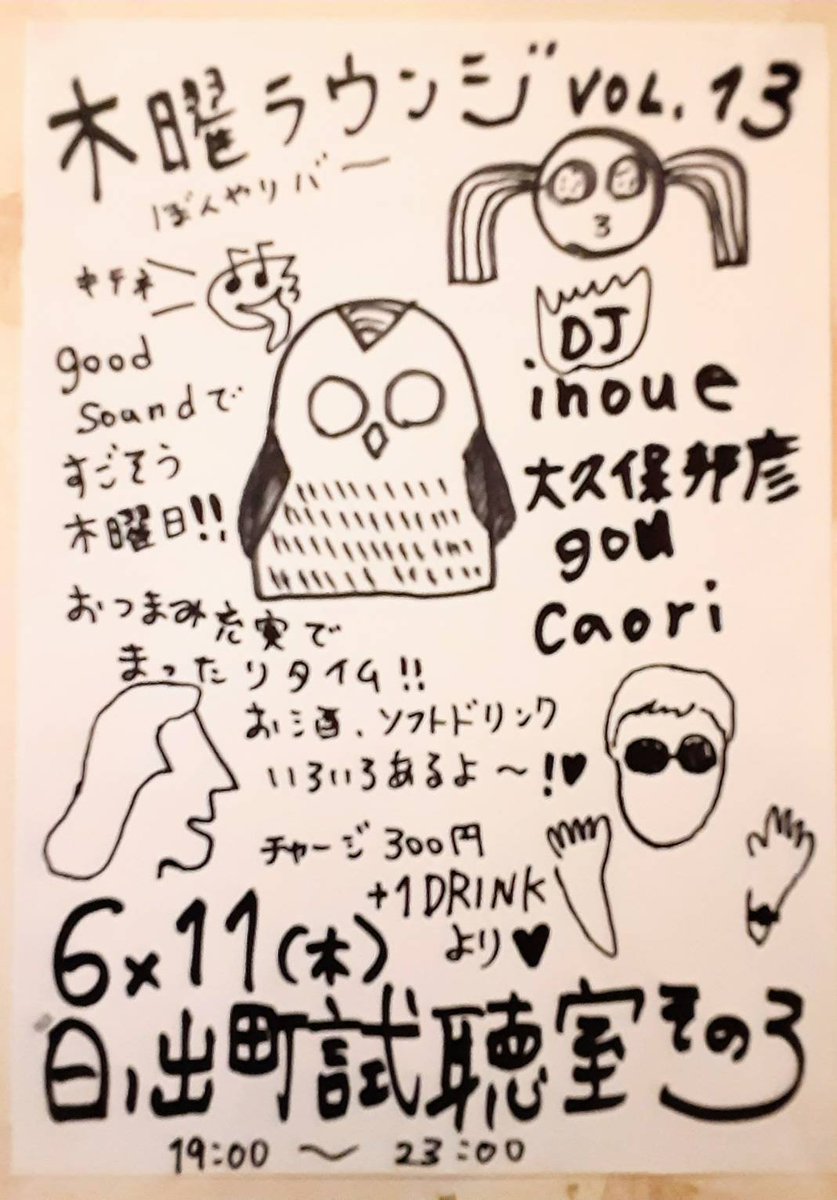 木曜ラウンジ VOL.13
ぼんやりバー
キテネ
good
soundで
すごそう
木曜日!!
DJ
inoue
大久保邦彦
gou
caori
おつまみ充実で
まったりタイム!!
お酒、ソフトドリンク
いろいろあるよ〜!♥
チャージ300円
+1DRINK
より♥
6×11(木)
日ノ出町試聴室その3
19:00〜23:00